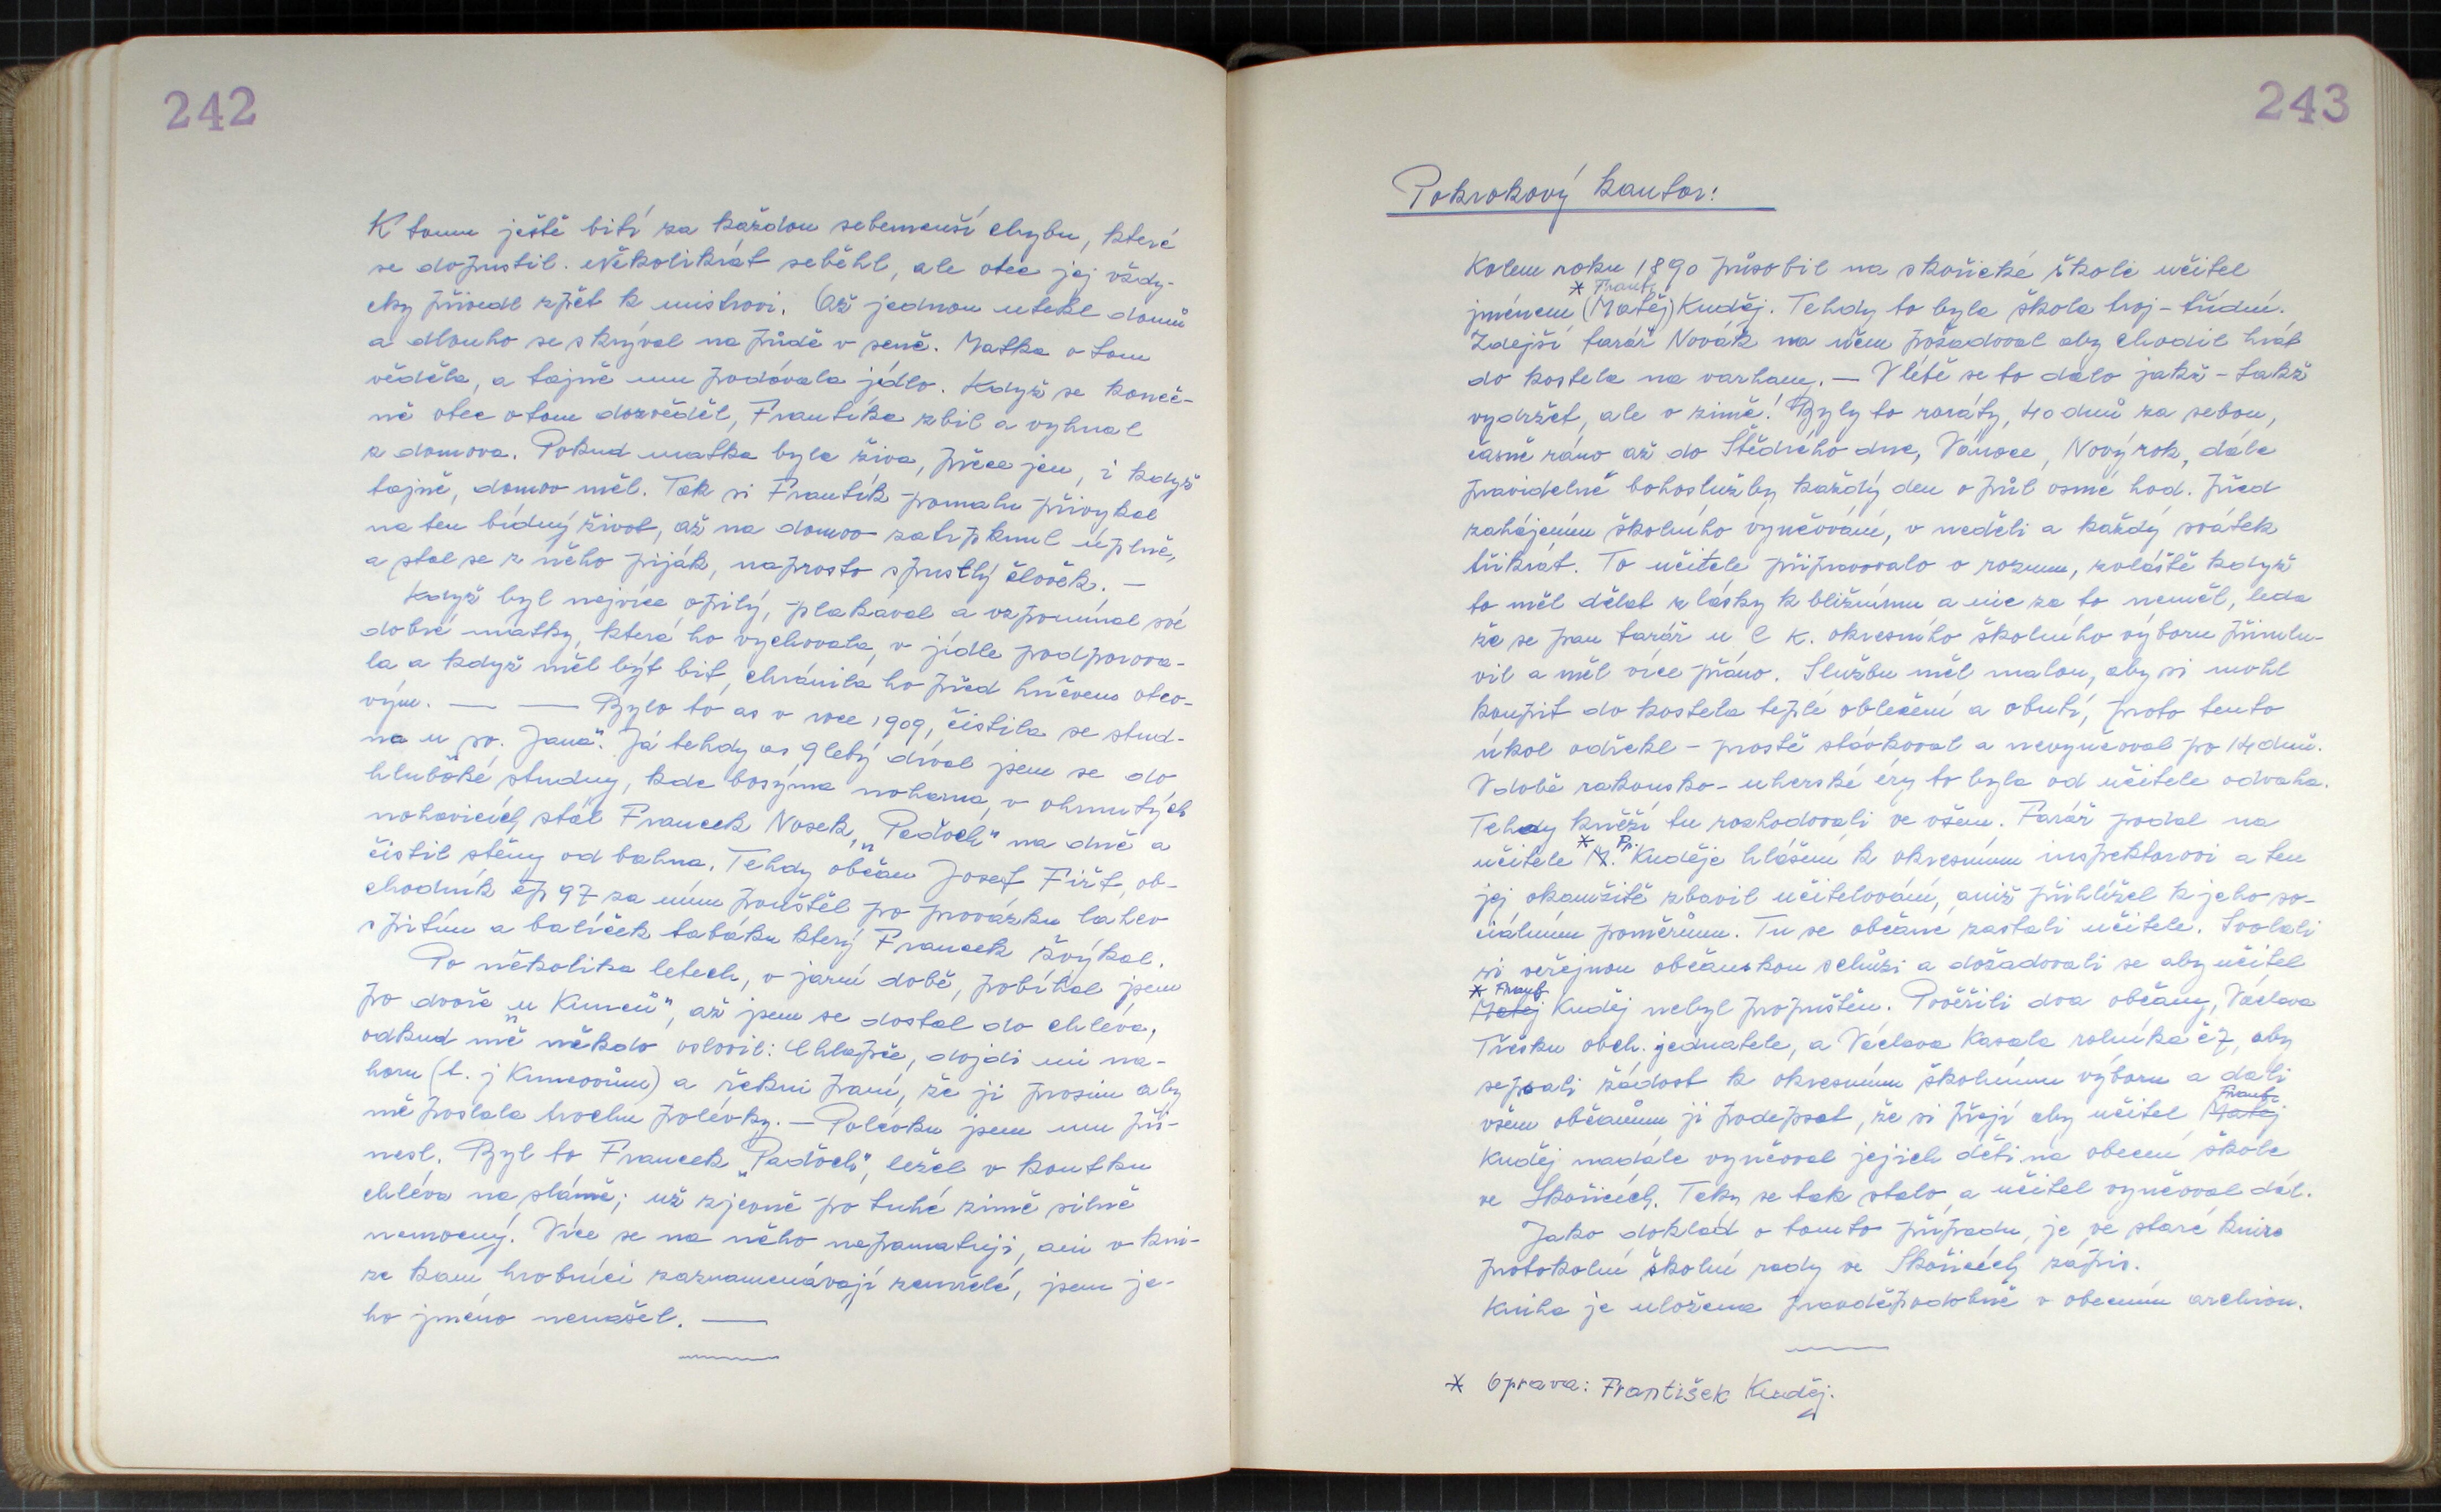 242
K tomu ještě bití za každou sebemenší chybu, které
se dopustil. Několikrát seběhl, ale otec jej vždy-
cky přivedl zpět k mistrovi. Až jednou utekl domů
a dlouho se skrýval na půdě v seně. Matka o tom
věděla, a tajně mu podávala jídlo. Když se koneč-
ně otec o tom dozvěděl, Frantíka zbil a vyhnal
z domova. Pokud matka byla živa, přece jen, i když
tajně, domov měl. Tak si Frantík pomalu přivykal
na ten bídný život, až na domov zatrpknul úplně,
a stal se z něho piják, naprosto spustlý člověk. —
Když byl nejvíce opilý, plakával a vzpomínal své
dobré matky, která ho vychovala, v jídle podporova-
la a když měl být bit, chránila ho před hněvem otco-
vým. — — Bylo to as v roce 1909, čistila se stud-
na u „sv. Jana". Já tehdy as 9letý díval jsem se do
hluboké studny, kde bosýma nohama, v ohrnutých
nohavicích stál Francek Nosek, „Paďoch" na dně a
čistil stěny od bahna. Tehdy občan Josef Fišt, ob-
chodník čp 97 za ním pouštěl po provázku lahev
s pitím a balíček tabáku který Francek žvýkal.
Po několika letech, v jarní době, pobíhal jsem
po dvoře „u Kunců", až jsem se dostal do chléva,
odkud mě někdo oslovil: Chlapče, dojdi mi na-
horu (t. j Kuncovům) a řekni paní, že ji prosím aby
mě poslala trochu polévky. — Polévku jsem mu při-
nesl. Byl to Francek „Paďoch", ležel v koutku
chléva na slámě; už zjevně po tuhé zimě silně
nemocný. Více se na něho nepamatuji, ani v kni-
ze kam hrobníci zaznamenávají zemřelé, jsem je-
ho jméno nenašel. —
243
Pokrokový kantor:
Kolem roku 1890 působil na skořické škole učitel
* Frant.
jménem (Matěj) Kuděj. Tehdy to byla škola troj-třídní.
Zdejší farář Novák na něm požadoval aby chodil hrát
do kostela na varhany. — V létě se to dalo jakž-takž
vydržet, ale v zimě! Byly to roráty, 40 dnů za sebou,
časně ráno až do Štědrého dne, Vánoce, Nový rok, dále
pravidelné bohoslužby každý den o půl osmé hod. před
zahájením školního vyučování, v neděli a každý svátek
třikrát. To učitele připravovalo o rozum, zvláště když
to měl dělat z lásky k bližnímu a nic za to neměl, leda
že se pan farář u C K. okresního školního výboru přimlu-
vil a měl více psáno. Službu měl malou, aby si mohl
koupit do kostela teplé oblečení a obutí, proto tento
úkol odřekl – prostě stávkoval a nevyučoval po 14 dnů.
V době rakousko-uherské éry to byla od učitele odvaha.
Tehdy kněží tu rozhodovali ve všem. Farář podal na
učitele * M. Fr. Kuděje hlášení k okresnímu inspektorovi a ten
jej okamžitě zbavil učitelování, aniž přihlížel k jeho so-
ciálním poměrům. Tu se občané zastali učitele. Svolali
si veřejnou občanskou schůzi a dožadovali se aby učitel
* Frant.
Matěj Kuděj nebyl propuštěn. Pověřili dva občany, Václava
Třešku obch. jednatele, a Václava Kasala rolníka č 7, aby
sepsali žádost k okresnímu školnímu výboru a dali
všem občanům ji podepsat, že si přejí aby učitel Matěj Frant.
Kuděj nadále vyučoval jejich děti na obecní škole
ve Skořicích. Taky se tak stalo, a učitel vyučoval dál.
Jako doklad o tomto případu, je ve staré knize
protokolní školní rady ve Skořicích zápis.
Kniha je uložena pravděpodobně v obecním archivu.
* Oprava: František Kuděj.